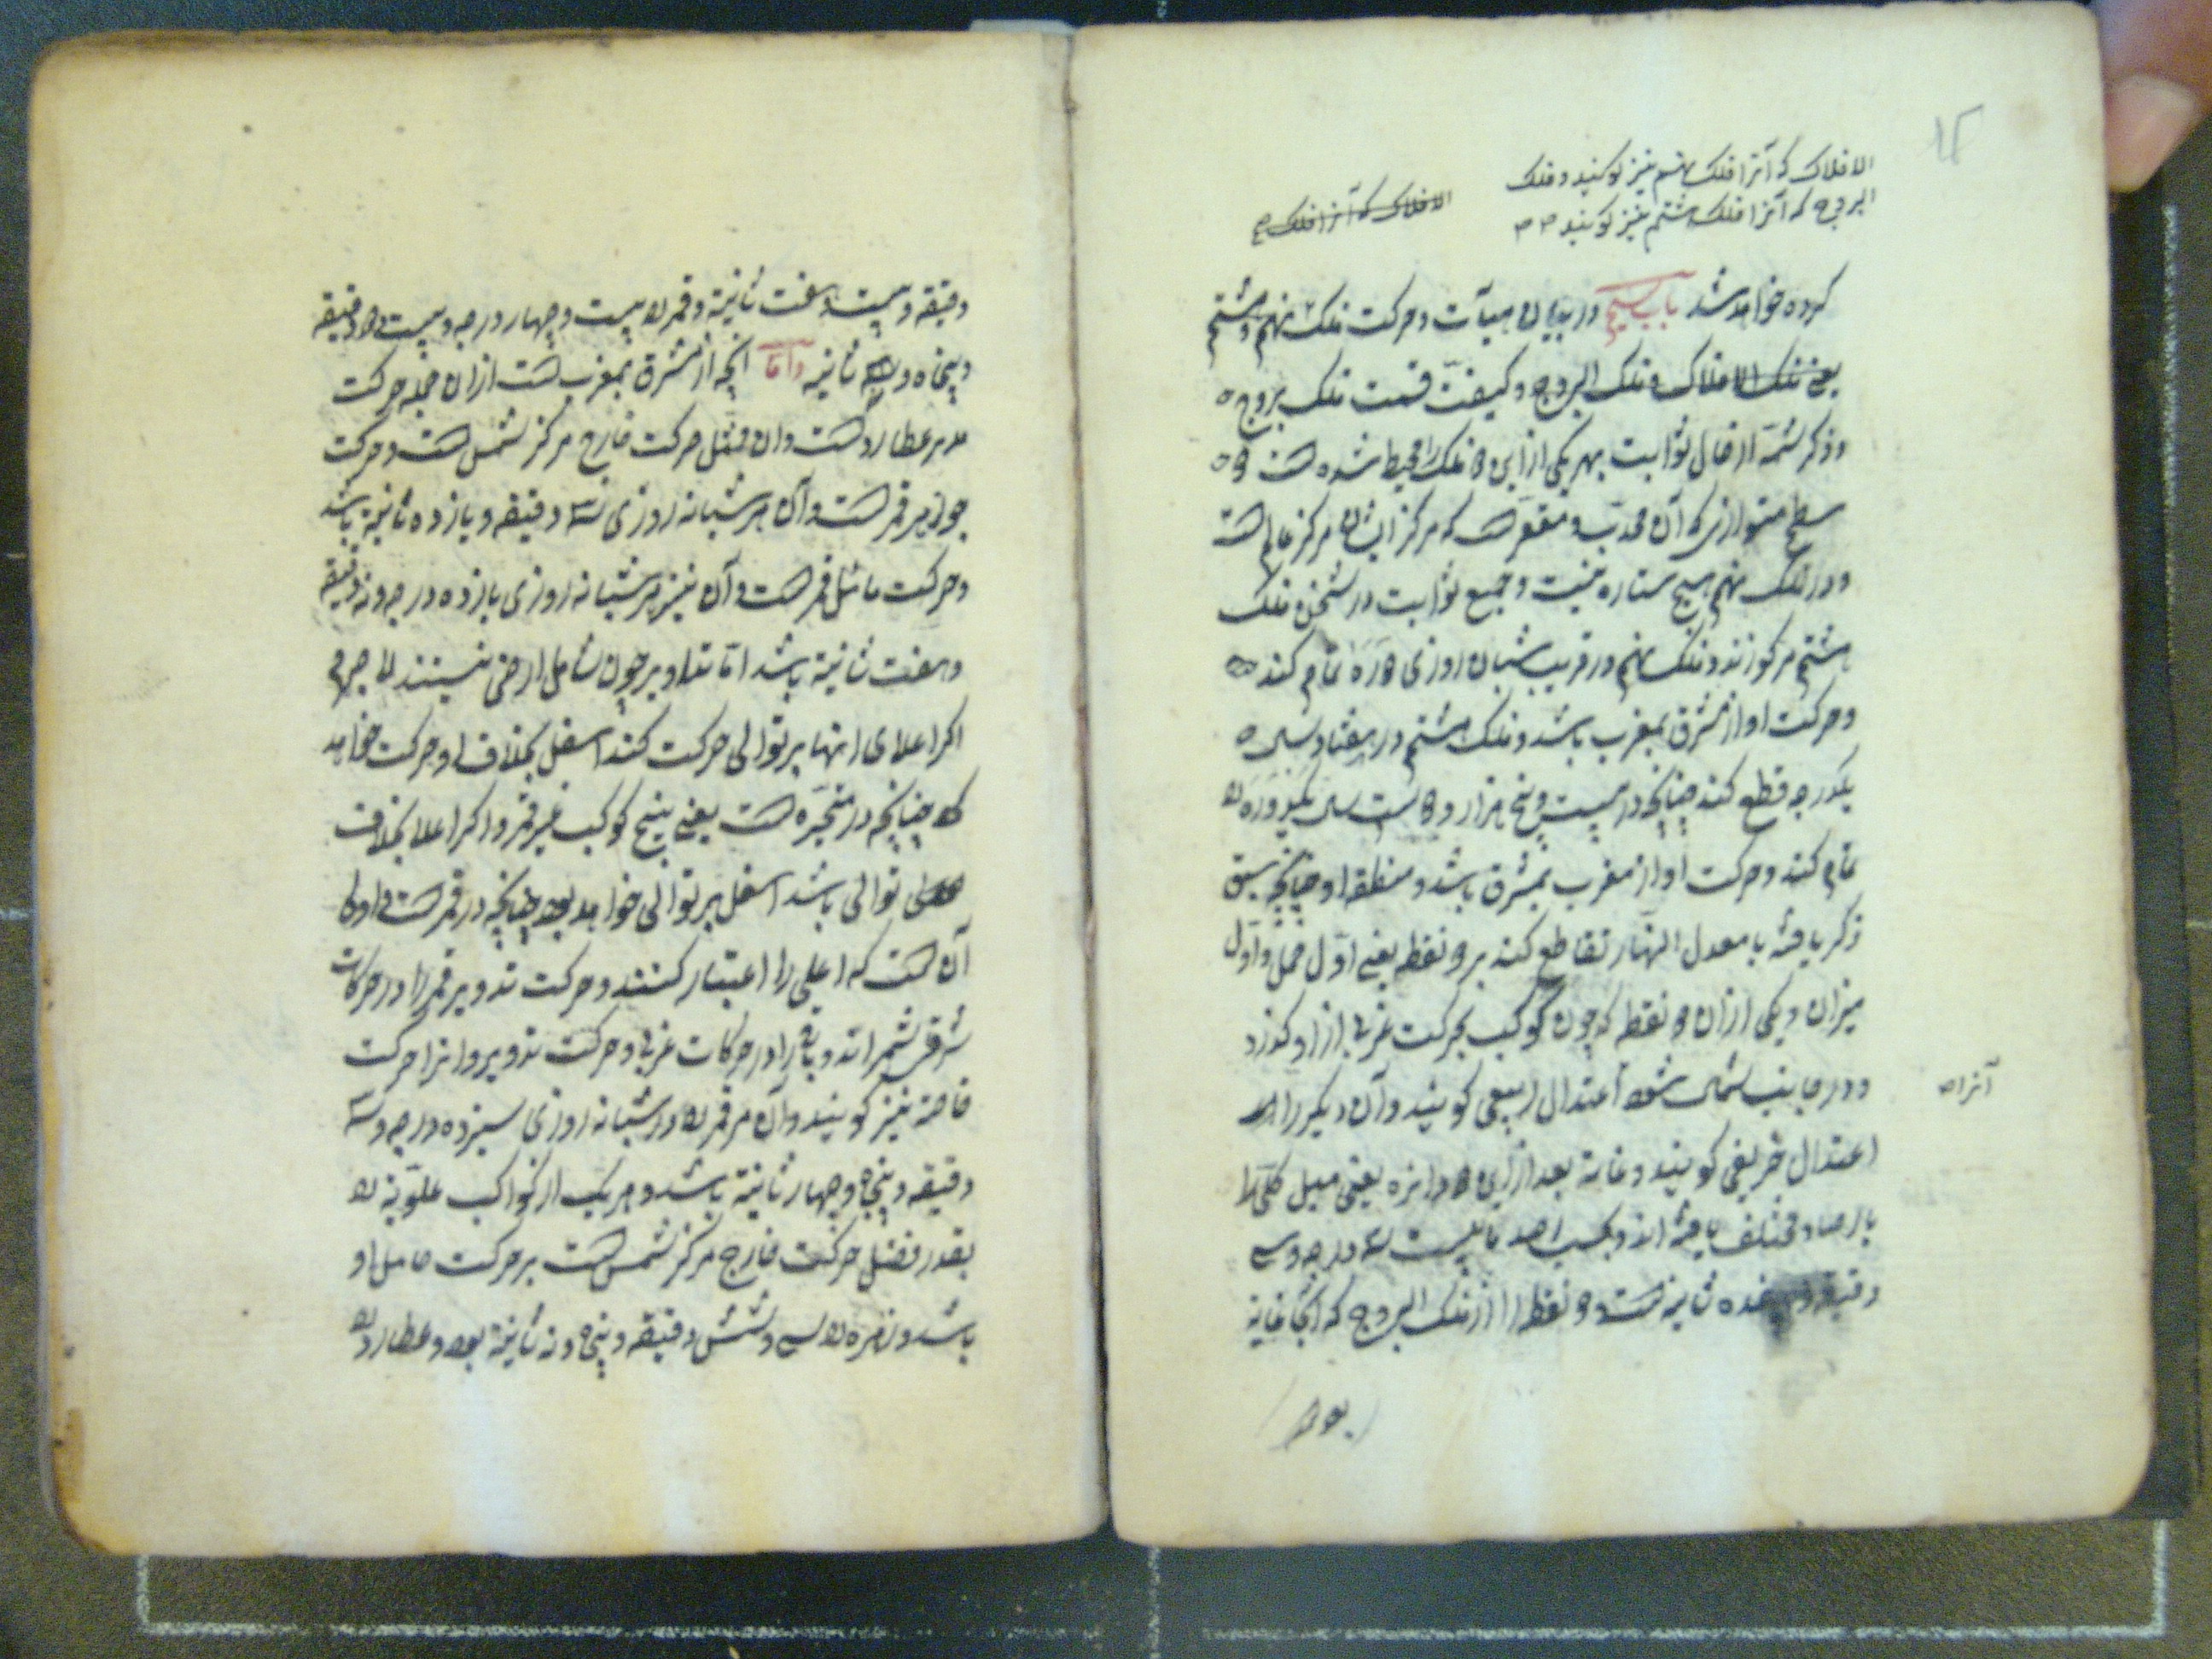 ۱۲
الافلاک که آنرا فلک نهم نیز گویند و فلک
البروج که آنرا فلک هشتم نیز گویند
الافلاک که آنرا فلک
کرده خواهد شد باب در بیان هیآت و حرکت فلک نهم و هشتم
یعنی فلک الافلاک و فلک البروج و کیفیت قسمت فلک بروج
و ذکر شمّهٔ از حال ثوابت بهر یکی از این دو فلک را محیط شده است دو
سطح متوازی که آن محدّب و مقعّر است که مرکز ایشان مرکز عالم است
و در فلک نهم هیچ ستاره نیست و جمیع ثوابت در ثخن فلک
هشتم مرکوزند و فلک نهم در قریب شبان روزی دوره تمام کند
و حرکت او از مشرق بمغرب باشد و فلک هشتم در هفتاد سال
یکدرجه قطع کند چنانچه در بیست و پنج هزار و دویست سال یکدوره
تمام کند و حرکت او از مغرب بمشرق باشد و منطقه او چنانچه سبق
ذکر یافته با معدل النهار تقاطع کند بر دو نقطه یعنی اوّل حمل و اوّل
میزان و یکی ازان دو نقطه که چون کوکب بحرکت غربی از او گذرد
و در جانب شمال شود اعتدال ربیعی گویند و آن دیگر را
آنرا
اعتدال خریفی گویند و غایة بعد از این دو دایره یعنی میل کلّی را
بارصاد مختلف یافته اند و بحسب رصد درجه و سی
دقیقه و هفده ثانیه است و دو نقطه را از فلک البروج که آنجا غایة
بعد
دقیقه و بیست و هفت ثانیة و قمر را بیست و چهار درجه و بیست و دو دقیقه
و پنجاه و سه ثانیه و امّا آنچه از مشرق بمغرب است ازان جمله حرکت
مدیر عطارد است و ان مثل حرکت خارج مرکز شمس است و حرکت
جوزهر قمر است و آن هر شبانه روزی سه دقیقه و یازده ثانیة باشد
و حرکت مائل قمر است و آن نیز هر شبانه روزی یازده درجه و نه دقیقه
و هفت ثانیة باشد امّا تداویر چون شامل ارض نیستند لا جرم
اکر اعلای انها بر توالی حرکت کند اسفل بخلاف او حرکت خواهد
کرد چنانچه در متحیّره است یعنی پنج کوکب غیر قمر و اکر اعلا بخلاف
توالی باشد اسفل بر توالی خواهد بود چنانچه در قمر است و اولی
آن است که اعلی را اعتبار کنند و حرکت تدویر قمر را در حرکات
شرقی شمرند و باقی را در حرکات غربی و حرکت تدویر و انرا حرکت
خاصّه نیز گویند و آن مر قمر را در شبانه روزی سیزده درجه و سه
دقیقه و پنجاه و چهار ثانیة باشد و هر یک از کواکب علویّه را
بقدر فضل حرکت خارج مرکز شمس است بر حرکت حامل او
باشد و زهره را سی و شش دقیقه و پنجاه و نه ثانیة بود و عطارد را